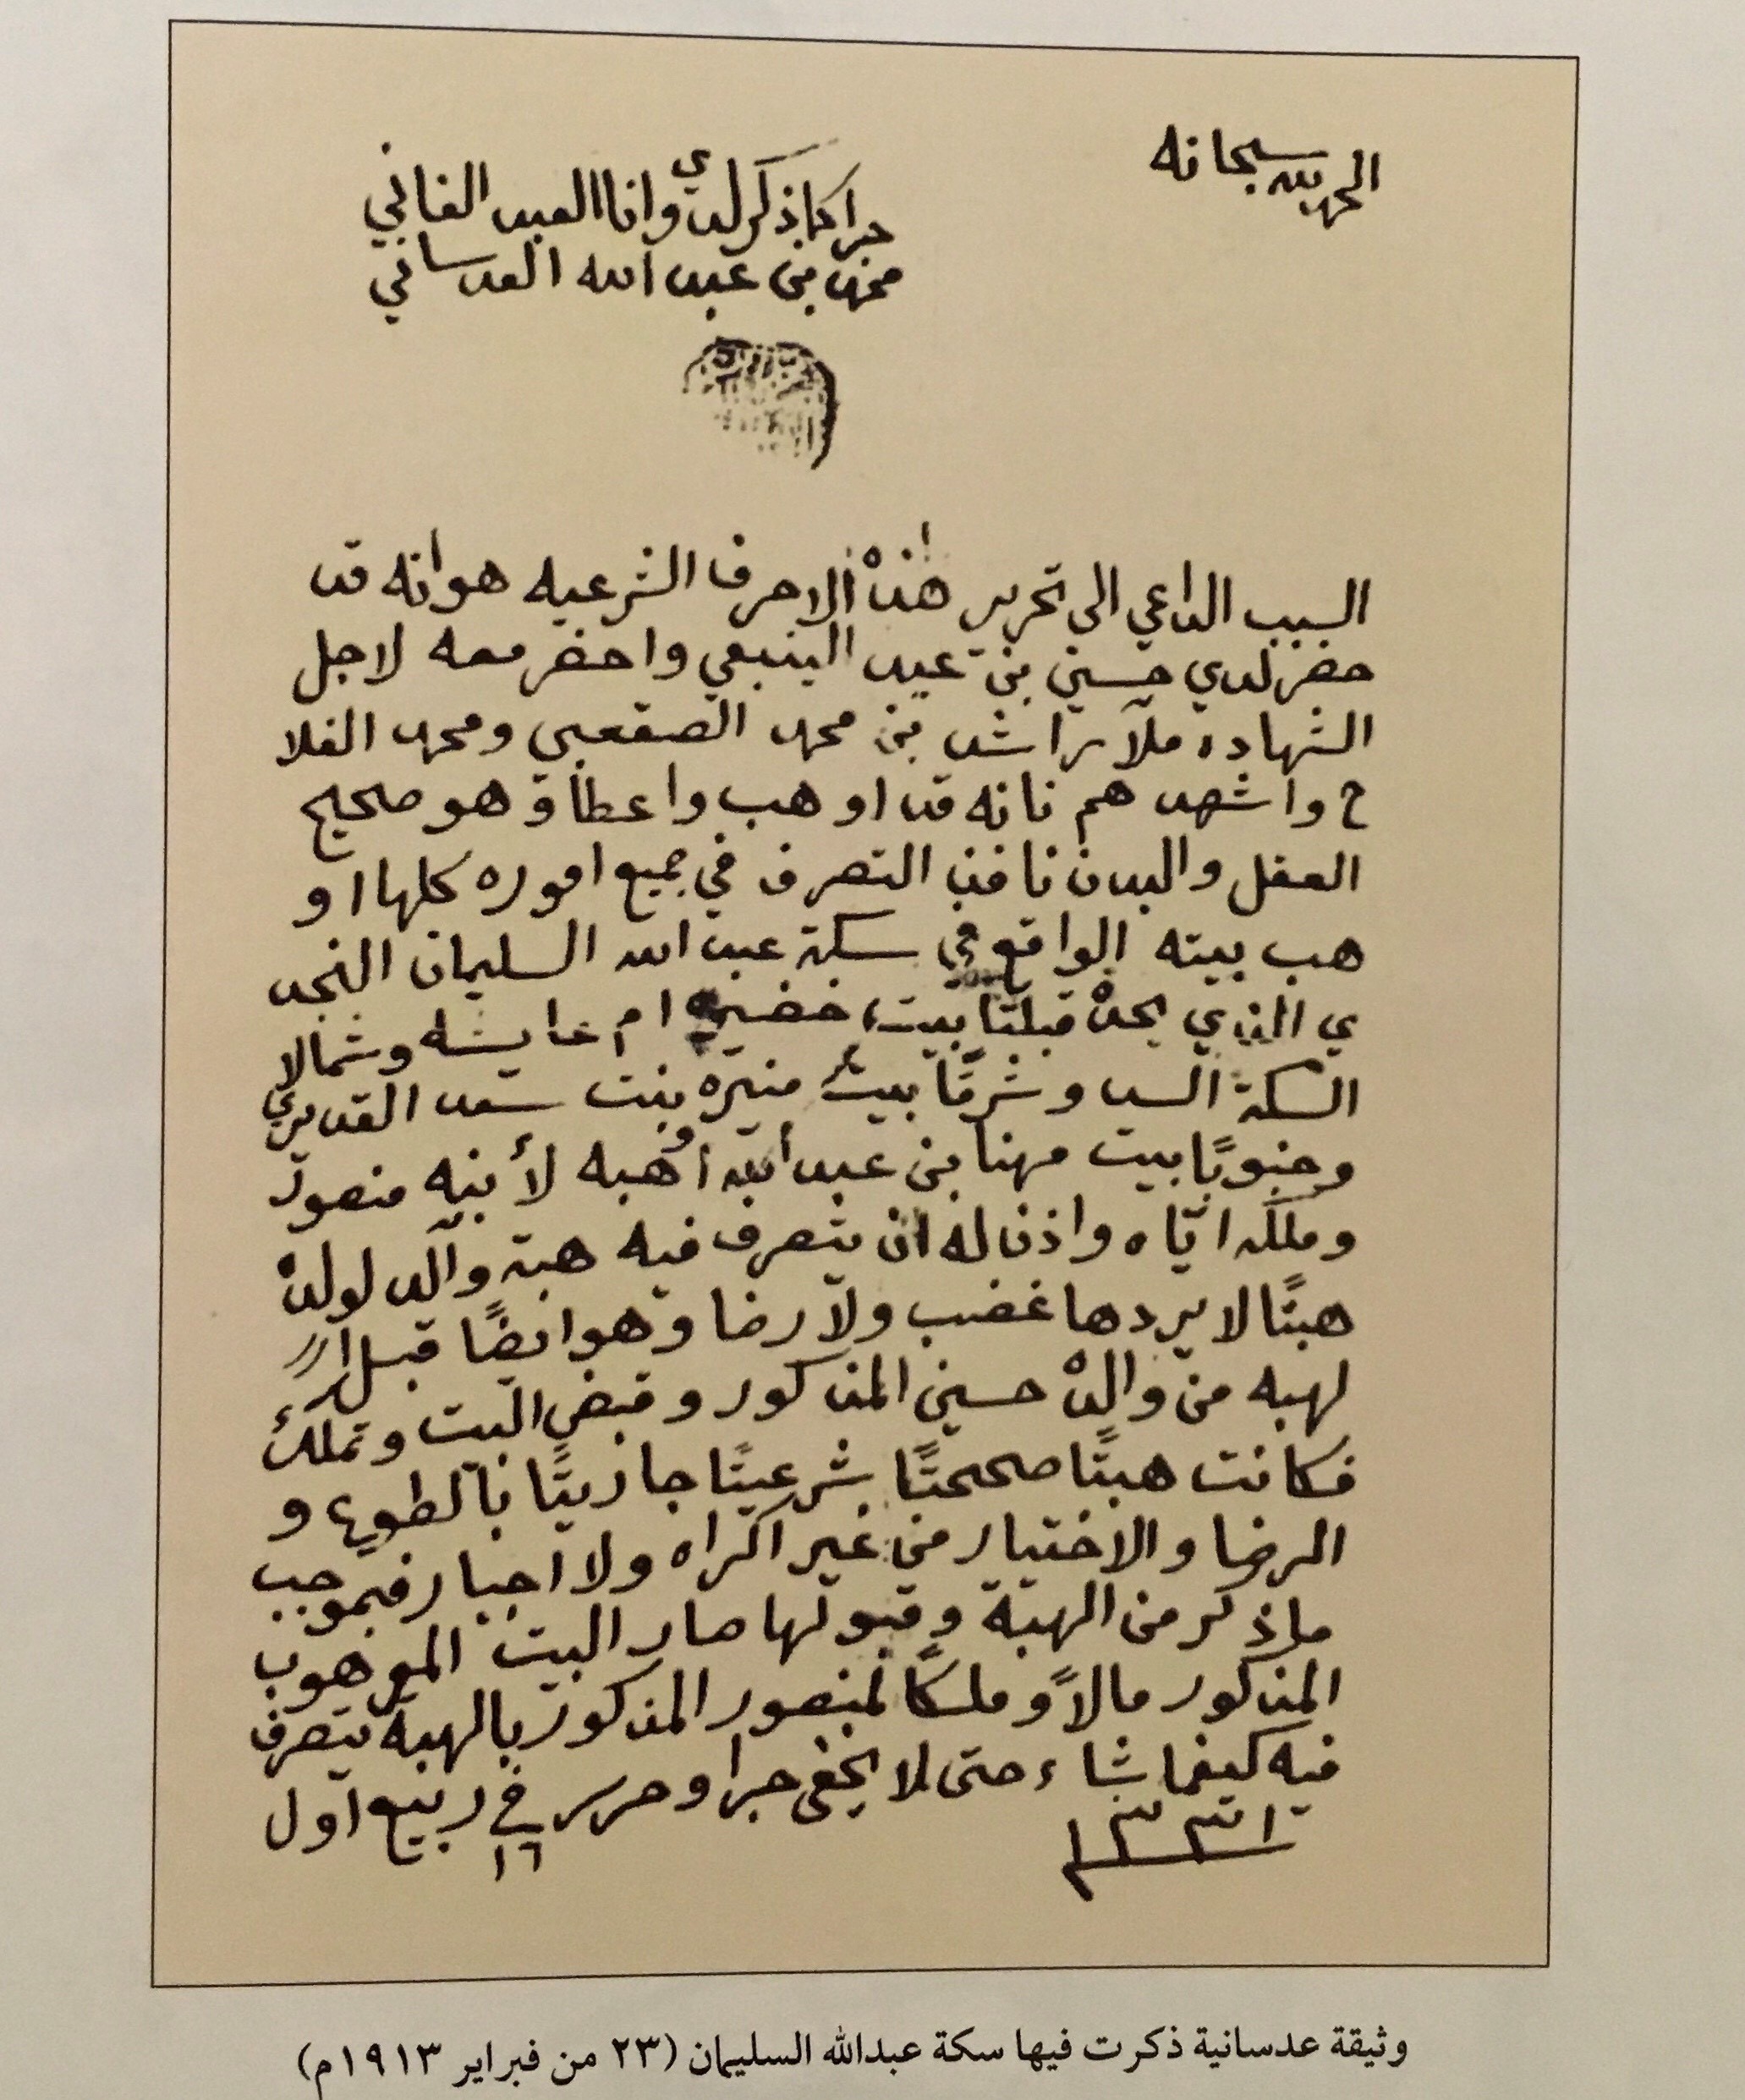 الحمد لله سبحانه
جرا كما ذكر لدي وانا العبد الفاني
محمد بن عبد الله العدساني
السبب الداعي الى تحرير هذه الاحرف الشرعيه هو انه قد
حضر لدي حسين بن عيد الينبعي واحضر معه لاجل
الشهاده ملا راشد بن محمد الصقعبي ومحمد الفلا
ح واشهد هم بانه قد اوهب واعطا وهو صحيح
العقل والبدن نافذ التصرف في جميع اموره كلها او
هب بيته الواقع في سكة عبد الله السليمان النجد
ي الذي يحده قبلتًا بيت خضير ام عايشه وشمالا
السكة السد وشرقًا بيت منيره بنت سعد القديري
وجنوبًا بيت مهنا بن عبد الله أوهبه لأبنه منصور
وملكه اياه واذن له ان يتصرف فيه هبة والد لولده
هبتًا لا يردها غضب ولا رضا وهو ايضًا قبل ا
لهبه من والده حسين المذكور وقبض البيت وتملكه
فكانت هبتًا صحيحتًا شرعيتًا جازيتًا بالطوع و
الرضا والاختيار من غير اكراه ولا اجبار فبموجب
ما ذكر من الهبة وقبولها صار البيت الموهوب
المذكور مالاً وملكًا لمنصور المذكور بالهبة يتصرف
فيه كيفما شاء حتى لا يخفى جرا وحرر في ١٦ ربيع اول
١٣٣١
وثيقة عدسانية ذكرت فيها سكة عبدالله السليمان (٢٣ من فبراير ١٩١٣م)